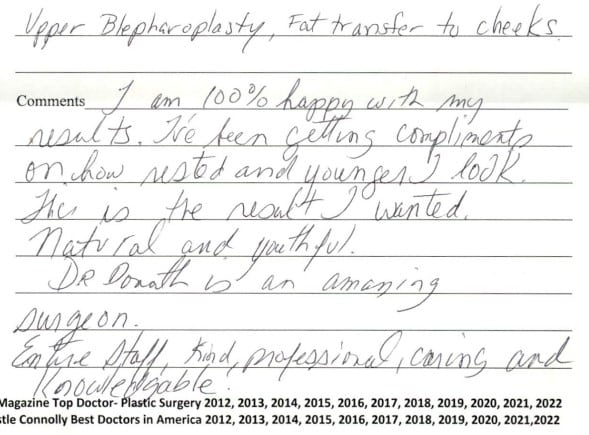 Upper Blepharoplasty, Fat transfer to cheeks
Comments I am 100% happy with my
results. I've been getting compliments
on how rested and younger I look.
This is the result I wanted.
Natural and youthful.
Dr Donath is an amazing
surgeon.
Entire Staff, Kind, professional, caring and
Knowledgable.
Magazine Top Doctor- Plastic Surgery 2012, 2013, 2014, 2015, 2016, 2017, 2018, 2019, 2020, 2021, 2022
stle Connolly Best Doctors in America 2012, 2013, 2014, 2015, 2016, 2017, 2018, 2019, 2020, 2021,2022